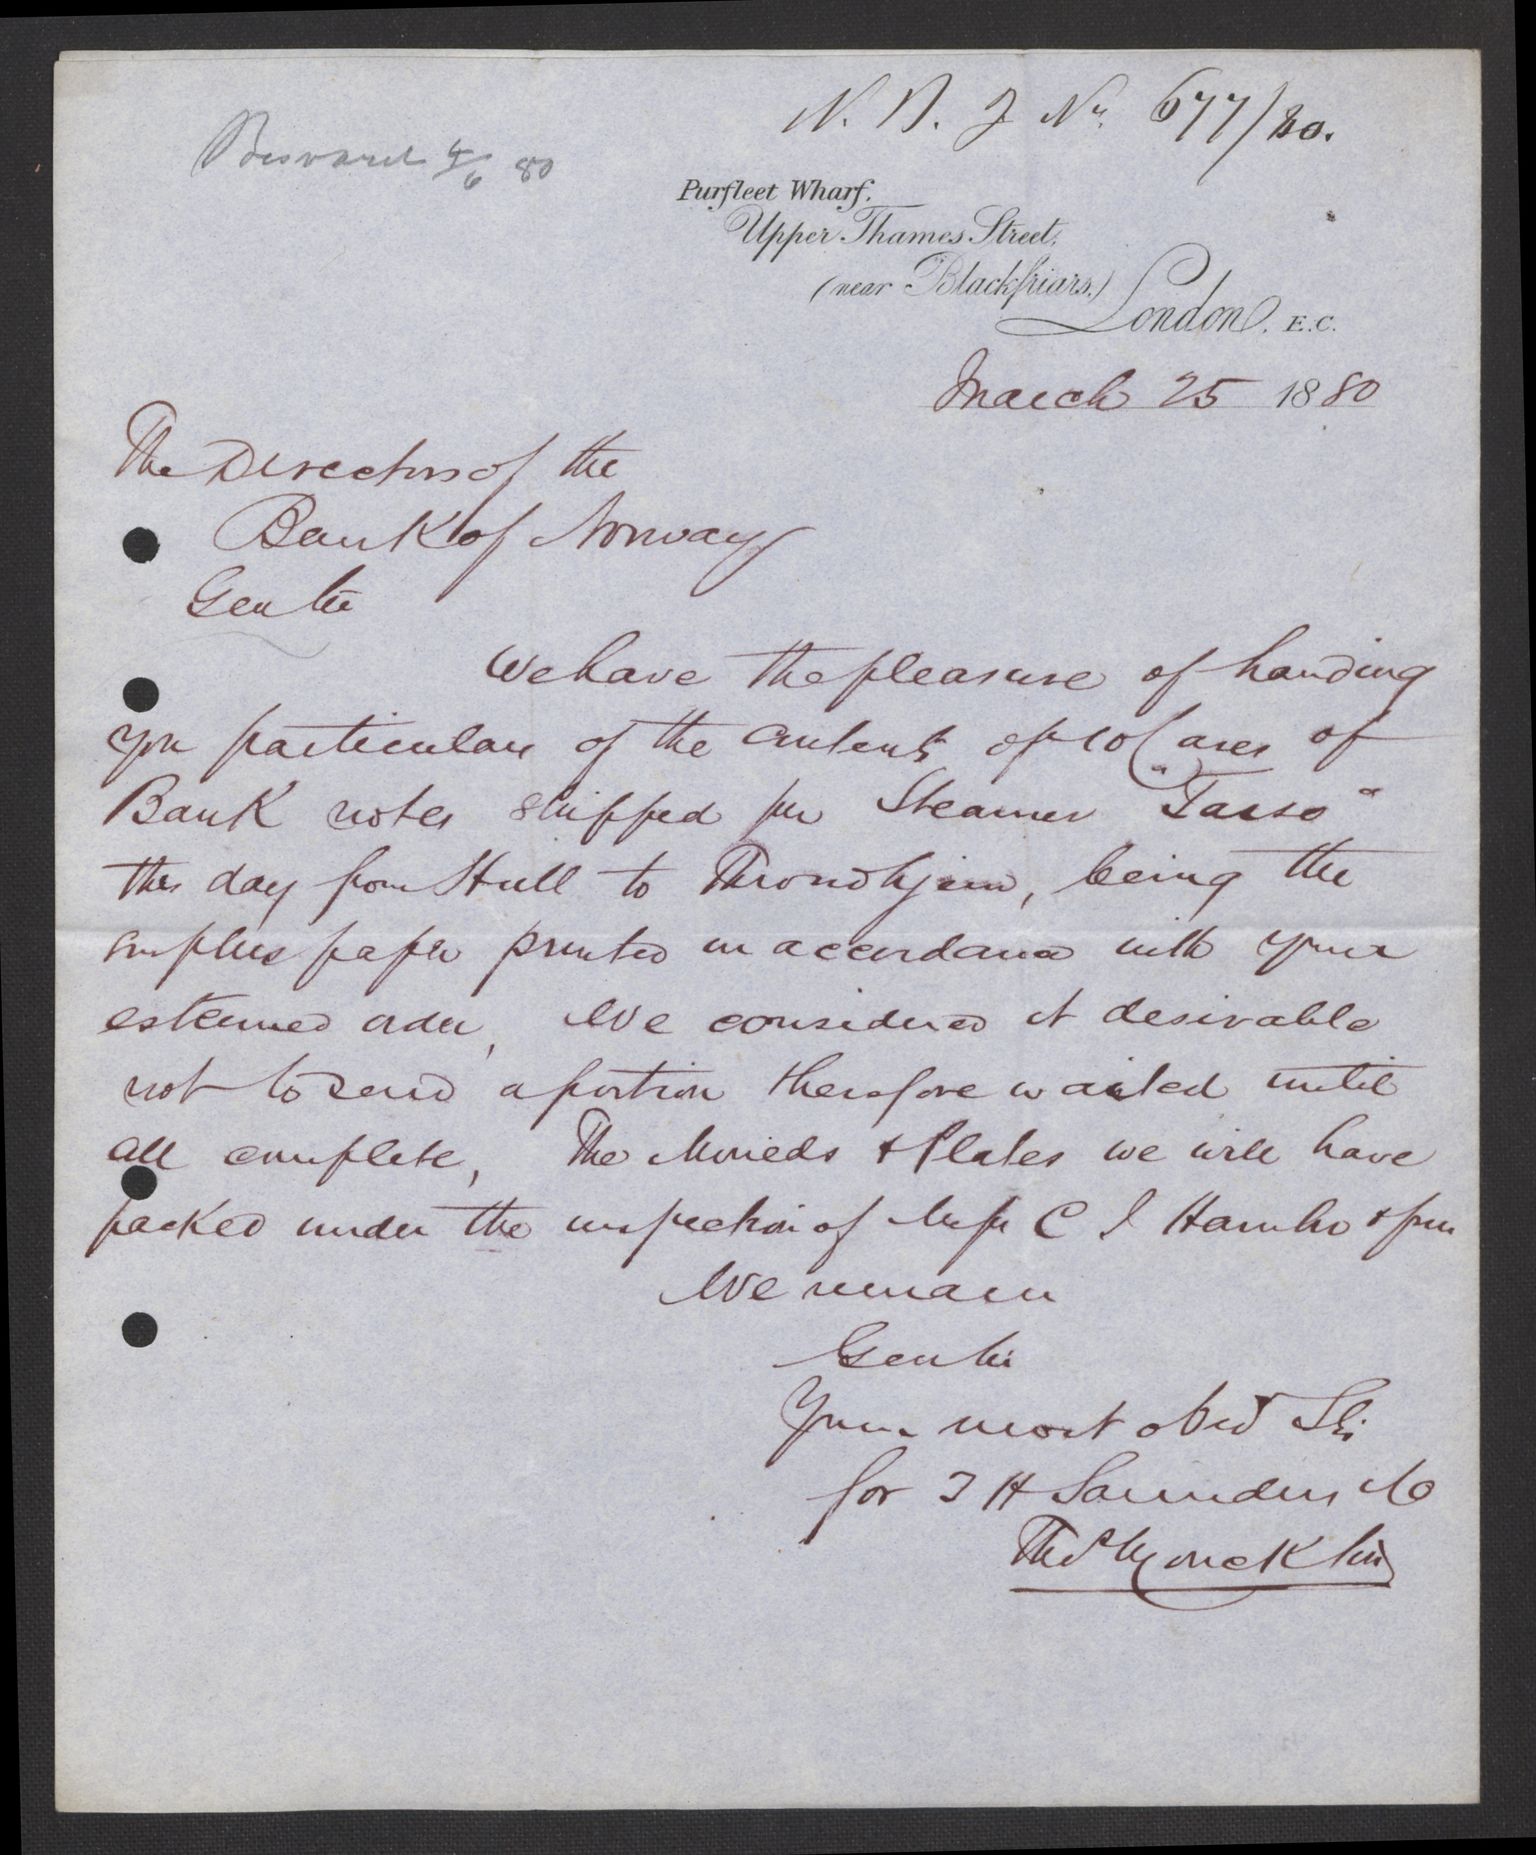 N. B. J No. 677/80.
Besvaret 4/6 80
Purfleet Wharf.
Upper Thames Street,
(near Blackfriars.)
London. E.C.
March 25 1880
The Directors of the
Bank of Norway
Gentn
We have the pleasure of handing
you particulars of the contents of 10 Cases of
Bank notes shipped per Steamer "Tasso"
this day from Hull to Throndhjem, being the
surplus paper printed in accordance with your
esteemed order, We considered it desirable
not to send a portion therefore waited until
all complete, The Moulds & Plates we will have
packed under the inspection of Messrs C J Hambro & Son
We remain
Gentn
Your most obed Sts
for T H Saunders & Co
Thos Moncklin